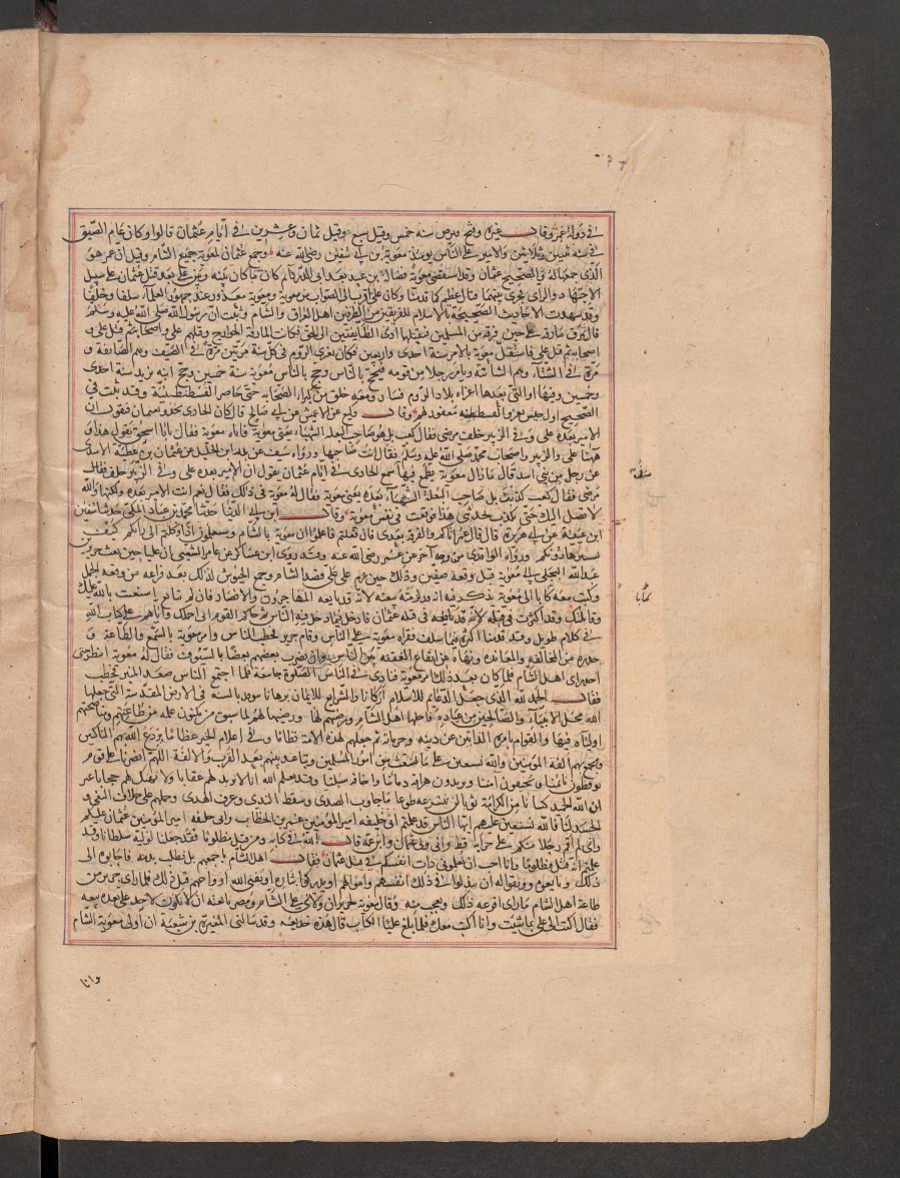 في دولة عمر وقال غيره وفتح قبرص سنة خمس وقيل سبع وقيل ثمان وعشرين في أيام عثمان قالوا وكان عام المضيق
في سنة ثنتين وثلاثين والامير على الناس يومئذ معوية بن ابي سفين رضي الله عنه وجمع عثمان لمعوية جميع الشام وقيل ان عمر هو
الذي جمعها له والصحيح عثمان وقد استقضى معوية فضالة بن عبيد بعد ابي الدرداء ثم كان ما كان بينه وبين علي بعد قتل عثمان على سبيل
الاجتهاد والراي فجرى بينهما قتال عظيم كما قدمنا وكان علي اقرب الى الصواب من معوية ومعوية معذور عند جمهور العلماء سلفا وخلفا
وقد شهدت الاحاديث الصحيحة بالاسلام للفريقين من الطرفين اهل العراق والشام وثبت ان رسول الله صلى الله عليه وسلم
قال تمرق مارقة على حين فرقة من المسلمين فيقتلها ادنى الطائفتين الى الحق فكانت المارقة الخوارج وقتلهم علي واصحابه ثم قتل علي
فاستقل معوية بالامر سنة احدى واربعين فكان يغزي الروم في كل سنة مرتين مرة في الصيف
مرة في الشتاء ويامر رجلا من قومه فيحج بالناس وحج بالناس معوية سنة خمسين وحج ابنه يزيد سنة احدى
وخمسين وفيها او التي بعدها اغزاه بلاد الروم فسار ومعه خلق من كبراء الصحابة حتى حاصر القسطنطينية وقد ثبت في
الصحيح اول جيش يغزوا القسطنطينية مغفور لهم وقال وكيع عن الاعمش عن ابي صالح قال كان الحادي يحدو بعثمان فيقول ان
الامير بعده علي وفي الزبير خلف مرضي فقال كعب بل هو صاحب البغلة الشهباء يعني معوية فاتاه معوية فقال يابا اسحق تقول هذا و
ههنا علي والزبير واصحاب محمد صلى الله عليه وسلم فقال انت صاحبها ورواه سيف عن بدر ابن الخليل عن عثمان بن عطية الاسدي
عن رجل من بني اسد قال ما زال معوية يطمع فيها منذ سمع الحادي في ايام عثمان يقول ان الامير بعده علي وفي الزبير خلف
مرضي فقال كعب كذبت بل صاحب البغلة الشهباء بعده يعني معوية فقال له معوية في ذلك فقال نعم انت الامير بعده ولكنها والله
لا تصل اليك حتى تكذب بحديثي هذا فوقعت في نفس معوية وقال ابن ابي الدنيا حدثنا محمد بن عباد المكي حدثنا سفين
ابن عيينة عن ابي هرون قال قال عمر اياكم والفرقة بعدي فان فعلتم فاعلموا ان معوية بالشام وستعلمون اذا وكلتم الى رايكم كيف
يستبزها دونكم ورواه الواقدي من وجه آخر عن عمر رضي الله عنه وقد روى ابن عساكر عن عامر الشعبي ان عليا حين بعث جرير بن
عبد الله البجلي الى معوية قبل وقعة صفين وذلك حين عزم علي على قصد الشام وجمع الجيوش لذلك بعد فراغه من وقعة الجمل
وكتب معه كتابا الى معوية يذكر فيه انه قد لزمته بيعته لانه قد بايعه المهاجرون والانصار فان لم تبايع استعنت بالله عليك
وقاتلتك وقد اكثرت في قتلة
في كلام طويل وقد قدمنا اكثره فيما سلف فقراه معوية على الناس وقام جرير فخطب الناس وامر معوية بالسمع والطاعة و
حذره من المخالفة والمعاندة ونهاه عن ايقاع الفتنة بين الناس وان يضرب بعضهم بعضا بالسيوف فقال له معوية انتظر حتى
اهل الشام فلما كان بعد ذلك امر معوية فنادى في الناس الصلوة جامعة فلما اجتمع الناس صعد المنبر فخطب
فقال الحمد لله الذي جعل الدعائم للاسلام اركانا والشرايع للايمان برهانا في الارض المقدسة التي جعلها
الله محل الانبياء والصالحين من عباده فاحلها اهل الشام ورضيهم لها ورضيها لهم لما سبق من مكنون علمه من طاعتهم ومناصحتهم
اولياءه فيها والقوام بامره الذابين عن دينه وحرماته ثم جعلهم لهذه الامة نظاما وفي اعلام الخير عظاما يردع الله بهم الناكثين
ويجمع بهم الفة المؤمنين والله نستعين على ما تشعث من امور المسلمين وتباعد بينهم بعد القرب والالفة اللهم انصرنا على قوم
يوقظون نائمنا ويخيفون آمننا ويريدون هراقة دمائنا واخافة سبلنا وقد يعلم الله انا لا نريد لهم عقابا ولا نهتك لهم حجابا غير
ان الله الحميد كسانا من الكرامة ثوبا لن ننزعه طوعا ما جاوب الصدى وسقط الندى وعرف الهدى وحملهم على خلافنا البغي و
الحسد لنا فالله نستعين عليهم ايها الناس قد علمتم اني خليفة امير المؤمنين عمر بن الخطاب واني خليفة امير المؤمنين عثمان عليكم
واني لم اقم رجلا منكم على خزاية قط واني ولي عثمان وابن عمه قال الله في كتابه ومن قتل مظلوما فقد جعلنا لوليه سلطانا وقد
علمتم انه قتل مظلوما وانا احب ان تعلموني ذات انفسكم في قتل عثمان فقال اهل الشام باجمعهم بل نطلب بدمه فاجابوه الى
ذلك وبايعوه ووثقوا له ان يبذلوا في ذلك انفسهم واموالهم او يدركوا بثاره او يفني الله ارواحهم قبل ذلك فلما راى جرير من
طاعة اهل الشام ما راى افزعه ذلك وعجب منه وقال معوية لجرير ان ولاني علي الشام ومصر بايعته ان لا يكون لاحد على بعده بيعة
فقال اكتب الى علي بما شئت وانا اكتب معك فلما بلغ عليا الكتاب قال هذه خديعة وقد سالني المغيرة بن شعبة ان اولي معوية الشام
وانا